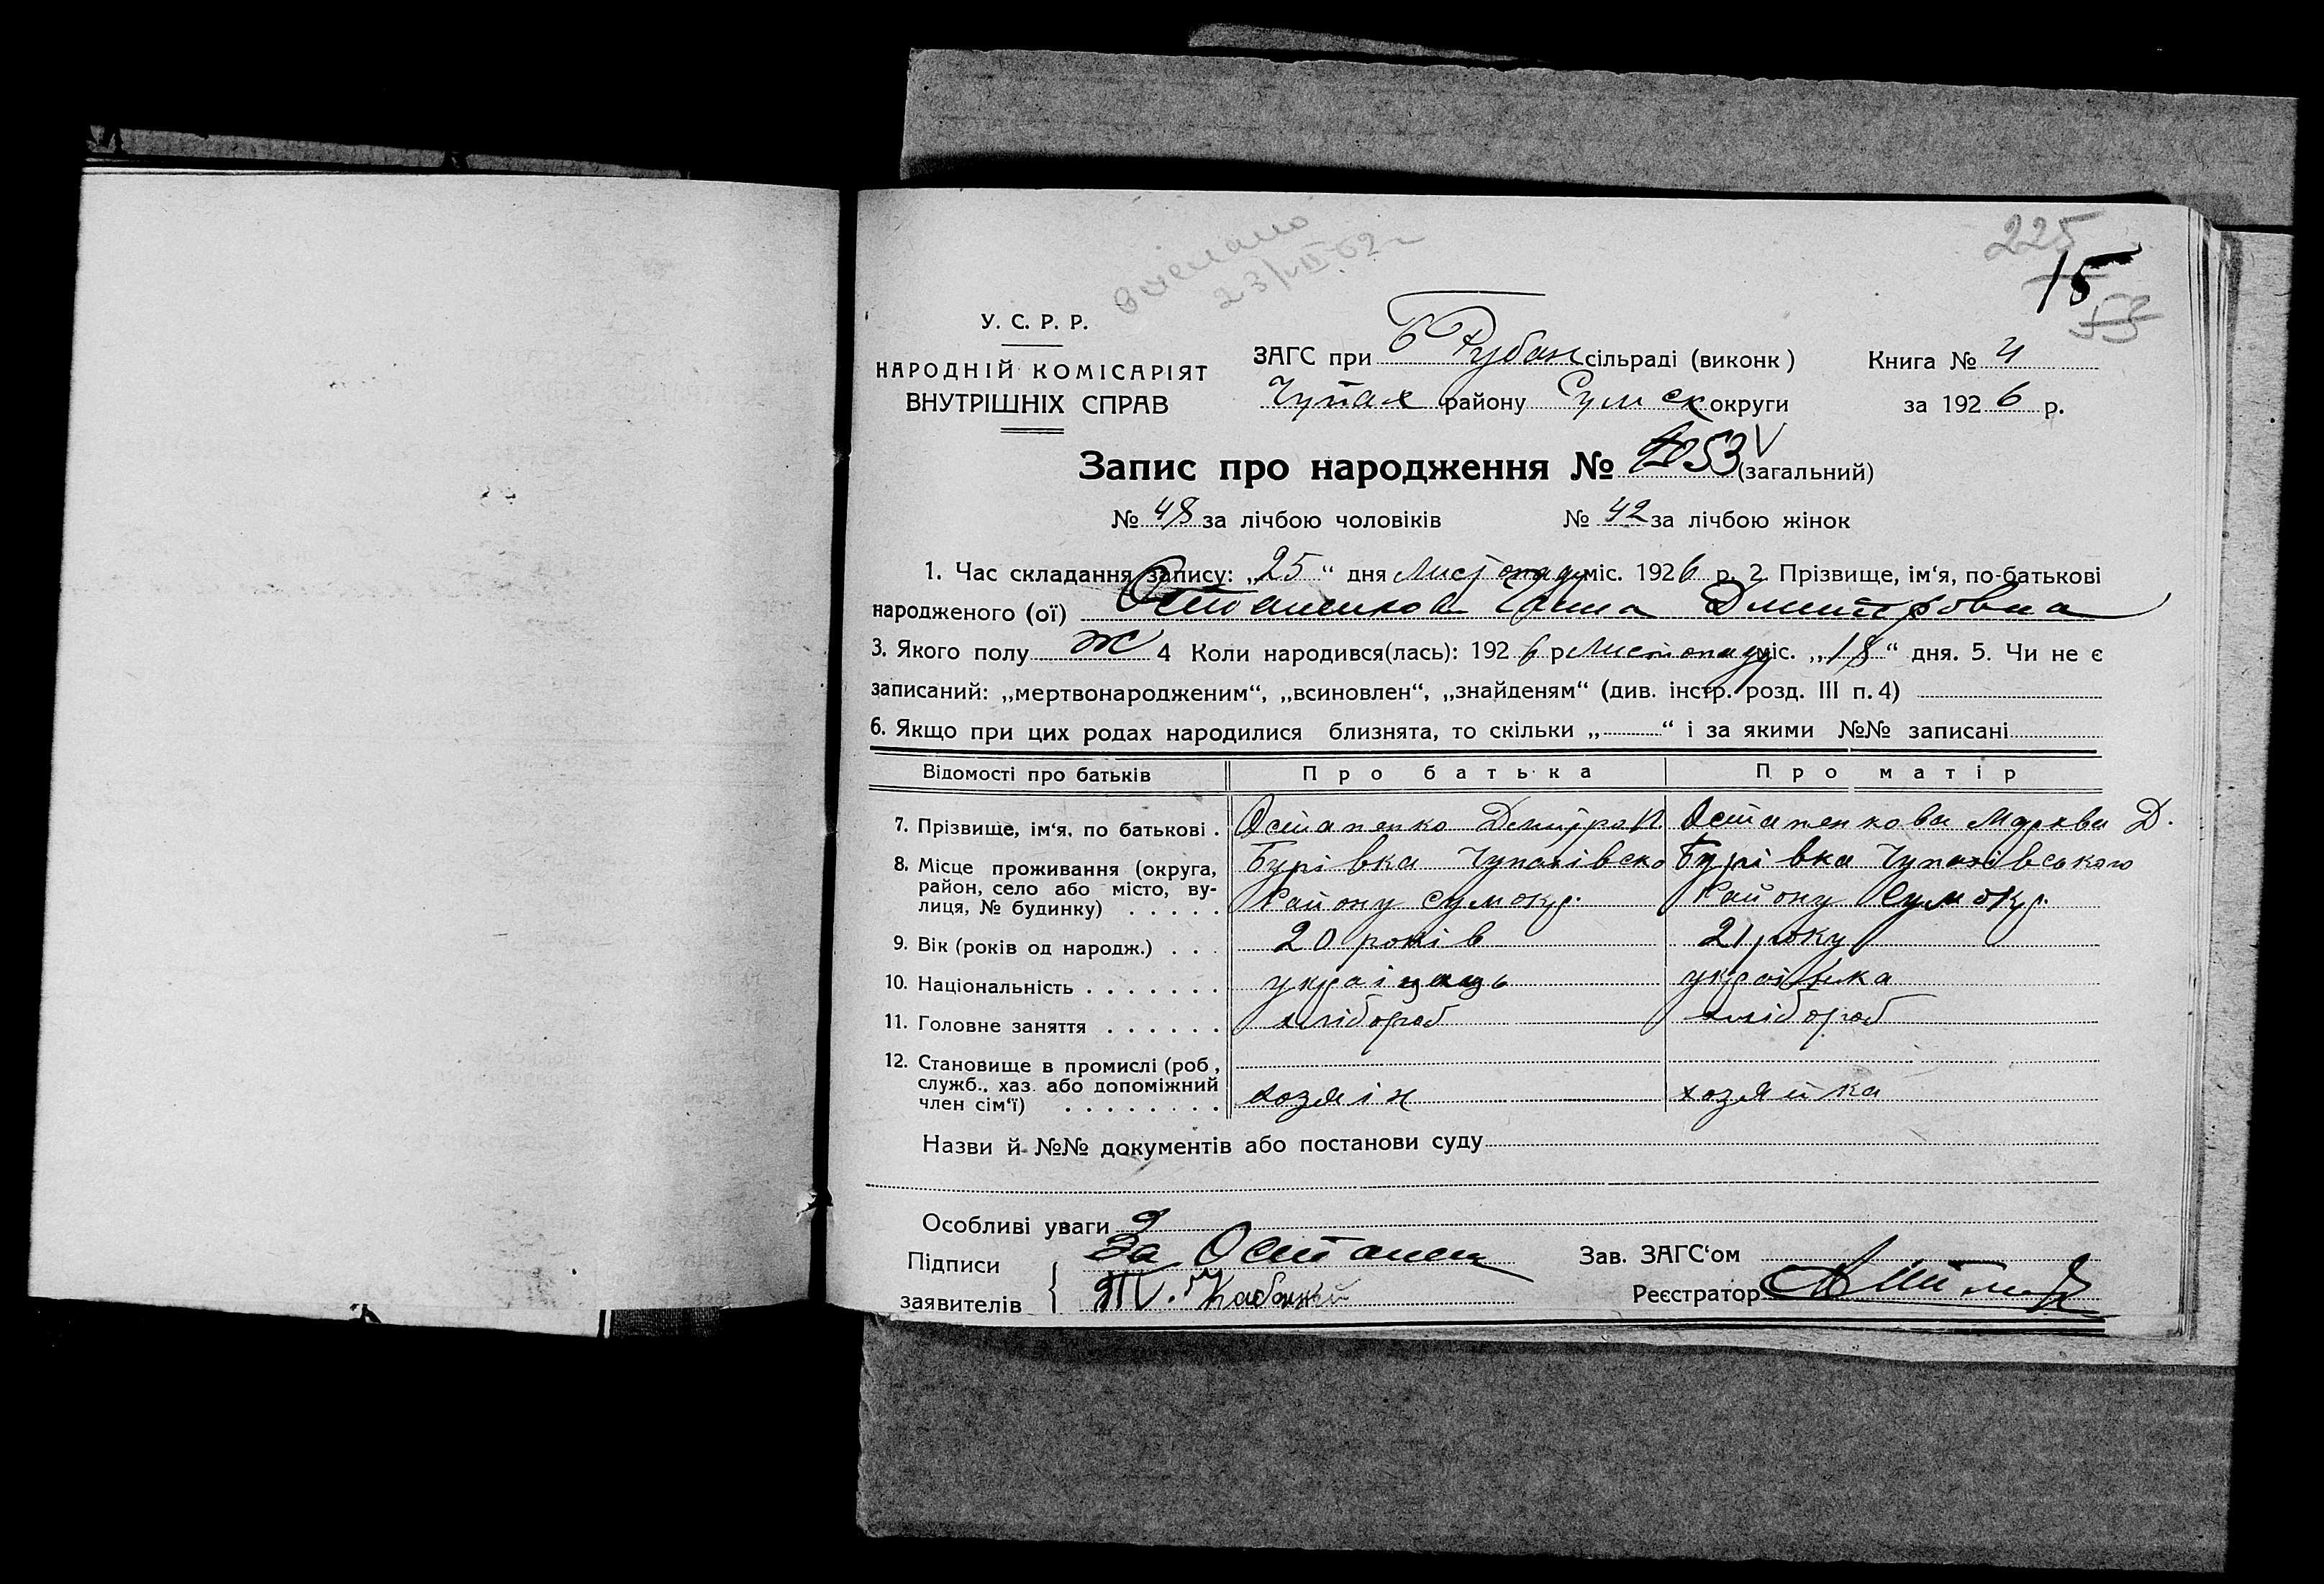 225
15
53
23/VII 62 г
У. С. Р. Р.
НАРОДНІЙ КОМІСАРІЯТ
ВНУТРІШНІХ СПРАВ
ЗАГС при Б Рубан сільраді (виконк)
Книга № 4
Чупах району Сумск округи
за 1926 р.
Запис про народження № 53 (загальний)
№ 48 за лічбою чоловіків № 42 за лічбою жінок
1. Час складання запису: „25“ дня Листопаду міс. 1926 р. 2. Прізвище, ім‘я, по-батькові
народженого (ої) Остапенкова Ганна Дмитровна
3. Якого полу ж 4 Коли народився(лась): 1926 р Листопаду міс. „18“ дня. 5. Чи не є
записаний: „мертвонародженим“, „всиновлен“, „знайденям“ (див. інстр. розд. III п. 4)
6. Якщо при цих родах народилися близнята, то скільки „ “ і за якими №№ записані
Відомості про батьків Про батька Про матір
7. Прізвище, ім‘я, по батькові . Остапенко Дмитро И. Остапенкова Марква Д.
8. Місце проживання (округа, Бурівка Чупахівско Бурівка Чупахівського
район, село або місто, ву-
лиця, № будинку) . . . . . Району Сумокр. Району Сумокр.
9. Вік (років од народж.) . . . 20 років 21 року
10. Національність . . . . . . . українець українка
11. Головне заняття . . . . . . хлібороб хлібороб
12. Становище в промислі (роб,
служб., хаз. або допоміжний
член сім‘ї) . . . . . . . . хозяін хозяйка
Назви й №№ документів або постанови суду
Особливі уваги
Підписи За Остапен
Зав. ЗАГС‘ом
заявителів
Реєстратор